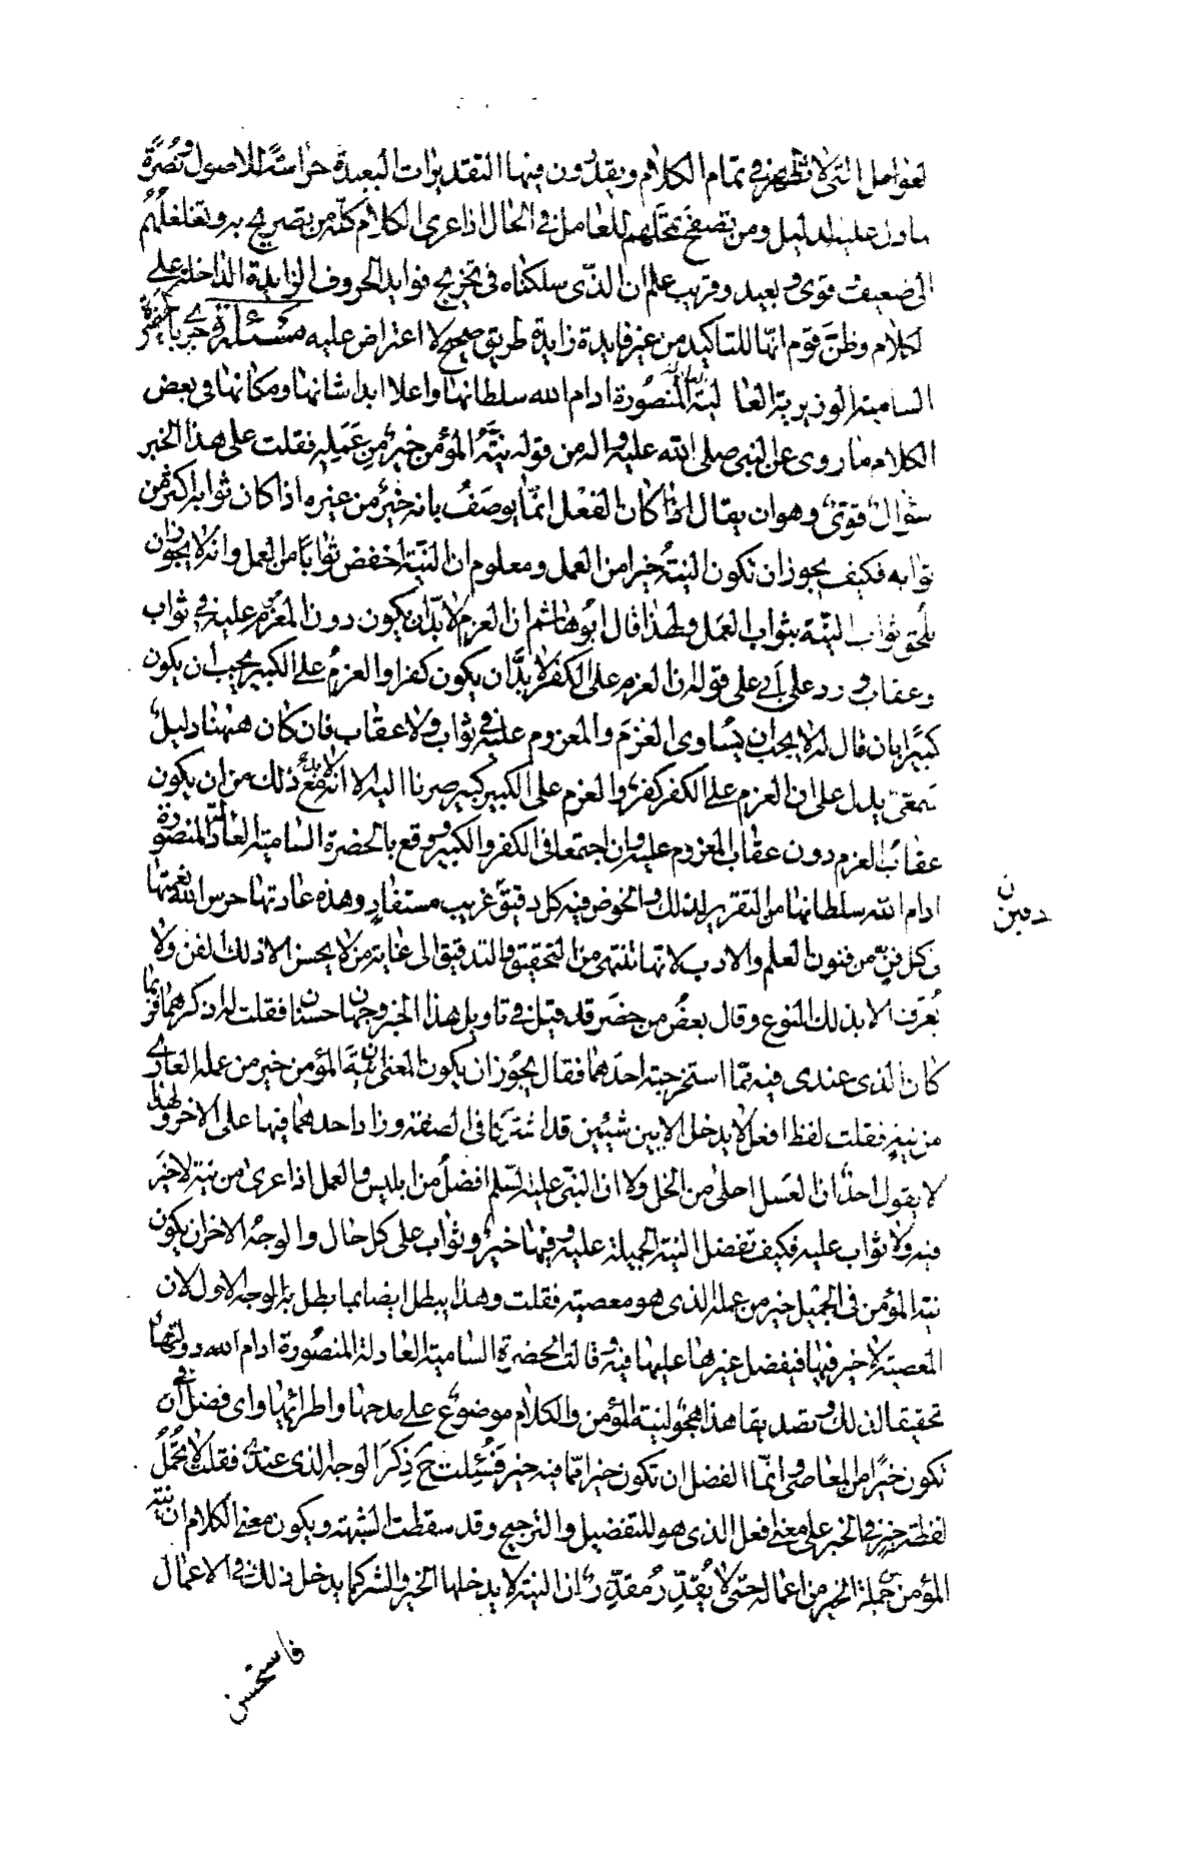 لعوامل التى لا تظهر فى تمام الكلام ويقدرون فيها التقديرات البعيدة حراسة للاصول ونصرة
ما دل عليه الدليل ومن تصفح تمحلهم للعامل فى الحال اذا عرى الكلام كله من تصريح به وتغلغلهم
الى ضعيف وقوى وبعيد وقريب علم ان الذى سلكناه فى تخريج فوايد الحروف الزايدة الداخلة على
لكلام وظن قوم انها للتاكيد من غير فايدة زايدة طريق صحيح لا اعتراض عليه مسئلة جرى بالحضرة
السامية الوزيرية العالية المنصورة ادام الله سلطانها واعلا ابدا شانها ومكانها فى بعض
الكلام ما روى عن النبى صلى الله عليه واله من قوله نية المؤمن خير من عمله فقلت على هذا الخبر
سؤال قوى وهو ان يقال اذا كان الفعل انما يوصف بانه خير من غيره اذا كان ثوابه اكثر من
ثوابه فكيف يجوز ان تكون النية خيرا من العمل ومعلوم ان النية اخفض ثوابا من العمل وانه لا يجوز ان
يلحق ثواب النية بثواب العمل ولهذا قال ابو هاشم ان العزم لا بد ان يكون دون المعزوم عليه فى ثواب
وعقاب ورد على ابى على قوله ان العزم على الكفر لا بد ان يكون كفرا والعزم على الكبير يجب ان يكون
كبيرا بان قال له لا يجب ان يساوى العزم والمعزوم عليه فى ثواب ولا عقاب فان كان ههنا دليل
سمعى يدل على ان العزم على الكفر كفر والعزم على الكبير كبير صرنا اليه الا انه لا بد مع ذلك من ان يكون
عقاب العزم دون عقاب المعزوم عليه وان اجتمعا فى الكفر والكبير ووقع بالحضرة السامية العادلة المنصورة
ادام الله سلطانها من التقرير لذلك والخوض فيه كل دقيق غريب مستفاد وهذه عادتها حرس الله نعمتها
فى كل فن من فنون العلم والادب لانها تنتهى من التحقيق والتدقيق الى غاية من لا يحسن الا ذلك الفن ولا
يعرف الا بذلك النوع وقال بعض من حضر قد قيل فى تاويل هذا الخبر وجهان حسنان فقلت له اذكرهما فربما
كان الذى عندى فيه مما استخرجته احدهما فقال يجوز ان يكون المعنى ان نية المؤمن خير من عمله العارى
من نية فقلت لفظ افعل لا يدخل الا بين شيئين قد اشتركا فى الصفة وزاد احدهما فيها على الاخر ولهذا
لا يقول احد ان العسل احلى من الخل ولا ان النبى عليه السلم افضل من ابليس والعمل اذا عرى من نية لا خير
فيه ولا ثواب عليه فكيف تفضل النية الجميلة عليه وفيها خير وثواب على كل حال والوجه الاخر ان يكون
نية المؤمن فى الجميل خير من عمله الذى هو معصية فقلت وهذا يبطل ايضا بما بطل به الوجه الاول لان
المعصية لا خير فيها فيفضل غيرها عليها فيه وقالت الحضرة السامية العادلة المنصورة ادام الله دولتها
تحقيقا لذلك وتصديقا هذا هجو لنية المؤمن والكلام موضوع على مدحها واطرائها واى فضل فى ان
تكون خيرا من المعاصى وانما الفضل ان تكون خيرا مما فيه خير فسئلت ح ذكر الوجه الذى عندى فقلت لا تحمل
لفظة خير فى الخبر على معنى افعل الذى هو للتفضيل والترجيح وقد سقطت الشبهة ويكون معنى الكلام ان نية
المؤمن من جملة الخير من اعماله حتى لا يقدر مقدر ان النية لا يدخلها الخير والشر كما يدخل ذلك فى الاعمال
فاستحسن